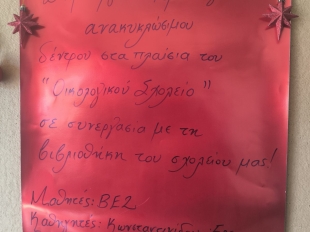 ανακυκλώσιμου
δέντρου στα πλαίσια του
"Οικολογικού Σχολείο"
σε συνεργασία με τη
βιβλιοθήκη του σχολείου μας!
Μαθητές: ΒΕ2
Καθηγητές: Κωνσταντινίδου